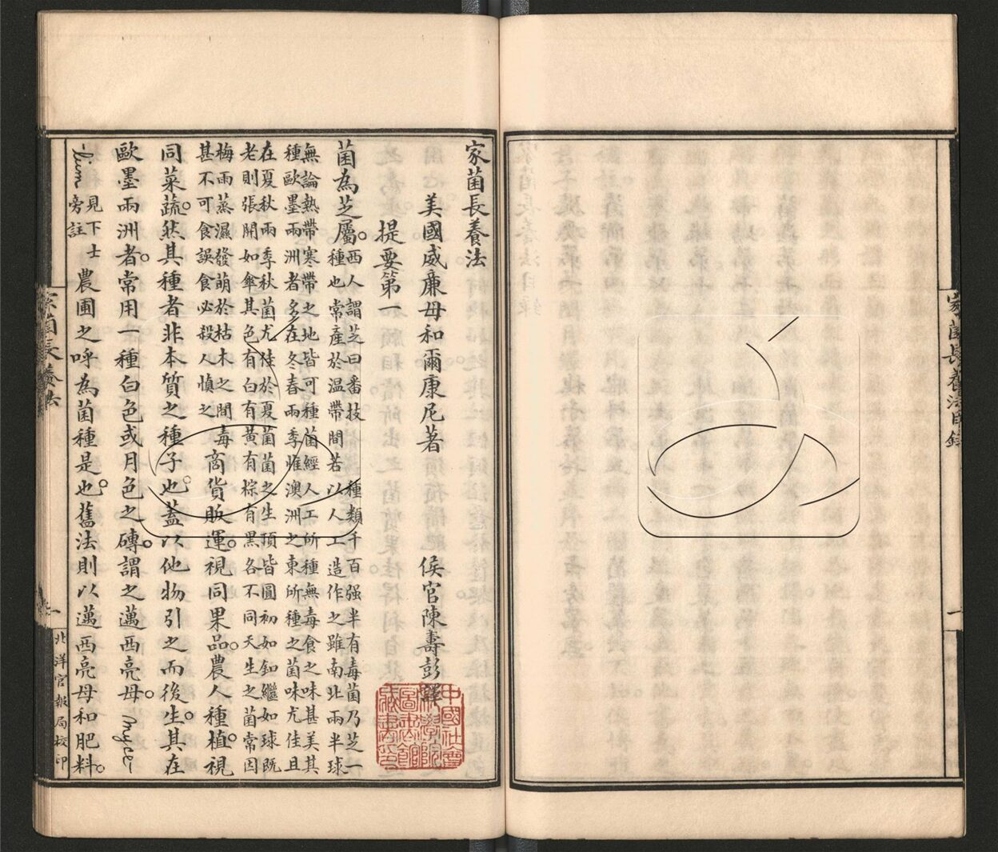 家菌長養法目錄 一
家菌長養法
美國威廉母和爾康尼著 侯官陳壽彭譯
提要第一
菌為芝屬。西人謂芝曰番技種類千百强半有毒菌乃芝一
種也常產於溫帶間若以人工造作之雖南北兩半球
無論熱帶寒帶之地皆可種菌經人工所種無毒食之味甚美其
種歐墨兩洲者多在冬春兩季惟澳洲之東所種之菌味尤佳且
在夏秋兩季秋菌尤陸於夏菌菌之生頂皆圓初如釦繼如球既
老則張開如傘其色有白有黃有棕有黑各不同天生之菌常因
梅雨蒸濕發萌於枯木之間
甚不可食誤食必殺人慎之
每商貨販運。視同果品。農人種植。視
同菜蔬。然其種者非本質之種子也。蓋以他物引之而後生。其在
歐墨兩洲者。常用一種白色或月色之磚。謂之邁西亮母。Myceli-
-um 見下士旁註 農圃之呼為菌種是也。舊法則以邁西亮母和肥料。
家菌長養法 一 北洋官報局校印